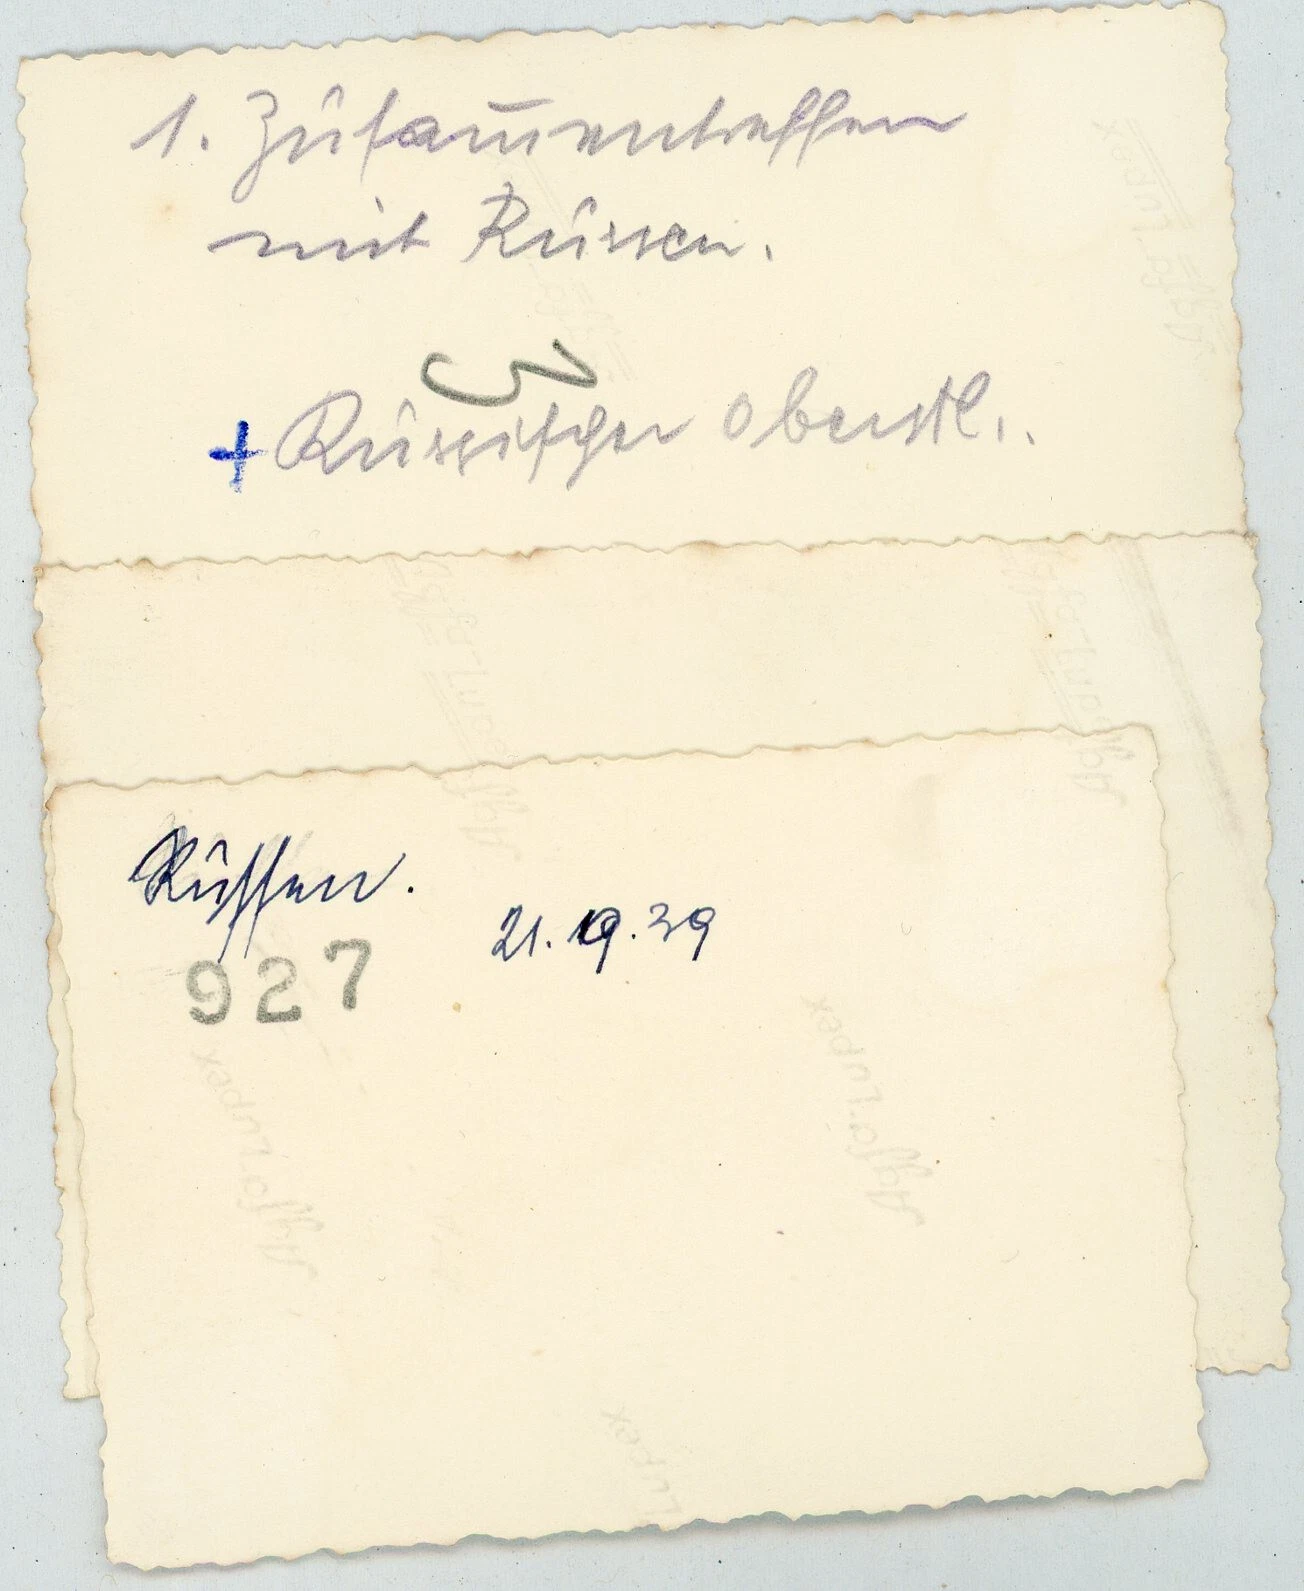 1. Zusam̄entreffen
mit Russen.
+ Russischer Oberstl.
Russen.
21. 9. 39
927
Agfa Lupex
Agfa Lupex
Agfa Lupex
Agfa Lupex
Agfa Lupex
Lupex